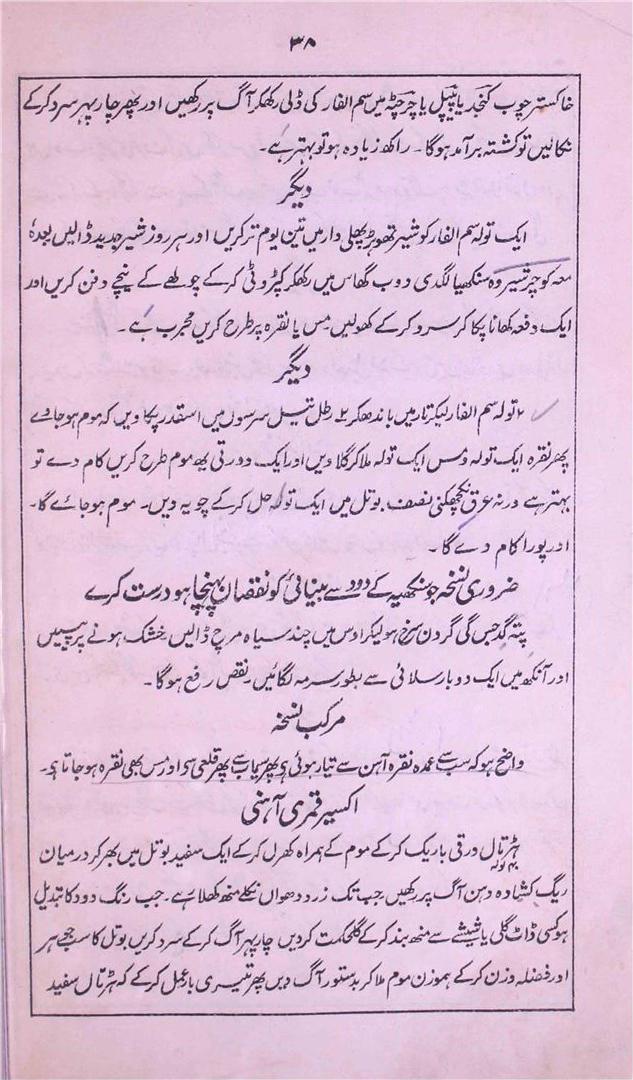 ۳۸
خاکستر چوب کنجد یا پیپل یا چرچٹہ میں سم الفار کی ڈلی رکھکر آگ پر رکھیں اور پھر چار پہر سرد کرکے
نکالیں تو کشتہ برآمد ہوگا۔ راکھ زیادہ ہو تو بہتر ہے۔
دیگر
ایک تولہ سم الفار کو شیر تھوہڑ پھلی دار میں تین یوم تر کریں اور ہر روز شیر جدید ڈالیں بعدہٗ
معہ کوچر شیر وہ سنکھیا لگدی دوب گھاس میں رکھکر کپڑوٹی کرکے چولھے کے نیچے دفن کریں اور
ایک دفعہ کھانا پکا کر سرد کرکے کھولیں مِس یا نقرہ پر طرح کریں مجرب ہے۔
دیگر
۲ تولہ سم الفار لیکر تار میں باندھکر ۲ رطل تیل سرسوں میں استقدر پکاویں کہ موم ہوجاوے
پھر نقرہ ایک تولہ و مس ایک تولہ ملا کر گلاویں اور ایک دو رتی یہ موم طرح کریں کام دے تو
بہتر ہے ورنہ عرق نکچھکنی نصف بوتل میں ایک تولہ حل کرکے چویہ دیں۔ موم ہو جائے گا۔
اور پورا کام دے گا۔
ضروری نسخہ جو سنکھیہ کے دود سے بینائی کو نقصان پہنچا ہو درست کرے
پتہ گد جس کی گردن سُرخ ہو لیکر اوس میں چند سیاہ مرچ ڈالیں خشک ہونے پر پیسیں
اور آنکھ میں ایک دو بار سلائی سے بطور سرمہ لگائیں نقص رفع ہوگا۔
مرکب نسخہ
واضح ہو کہ سب سے عمدہ نقرہ آہن سے تیار ہوئی ہی پھر سیماب سے پھر قلعی سی اور مس بھی نقرہ ہو جاتا ہی۔
اکسیر قمری آہنی
ہڑتال ورقی باریک کرکے موم کے ہمراہ کھرل کرکے ایک سفید بوتل میں بھر کر درمیان
ریگ کشادہ دہن آگ پر رکھیں جب تک زرد دھواں نکلے منھ کھلا رہے۔ جب رنگ دود کا تبدیل
ہو کسی ڈاٹ گلی یا شیشے سے منھ بند کرکے گلحکمت کردیں چار پہر آگ کرکے سرد کریں بوتل کا سب جوہر
اور فضلہ وزن کرکے ہموزن موم ملا کر بدستور آگ دیں پھر تیسری بار عمل کرکے کہ ہڑتال سفید